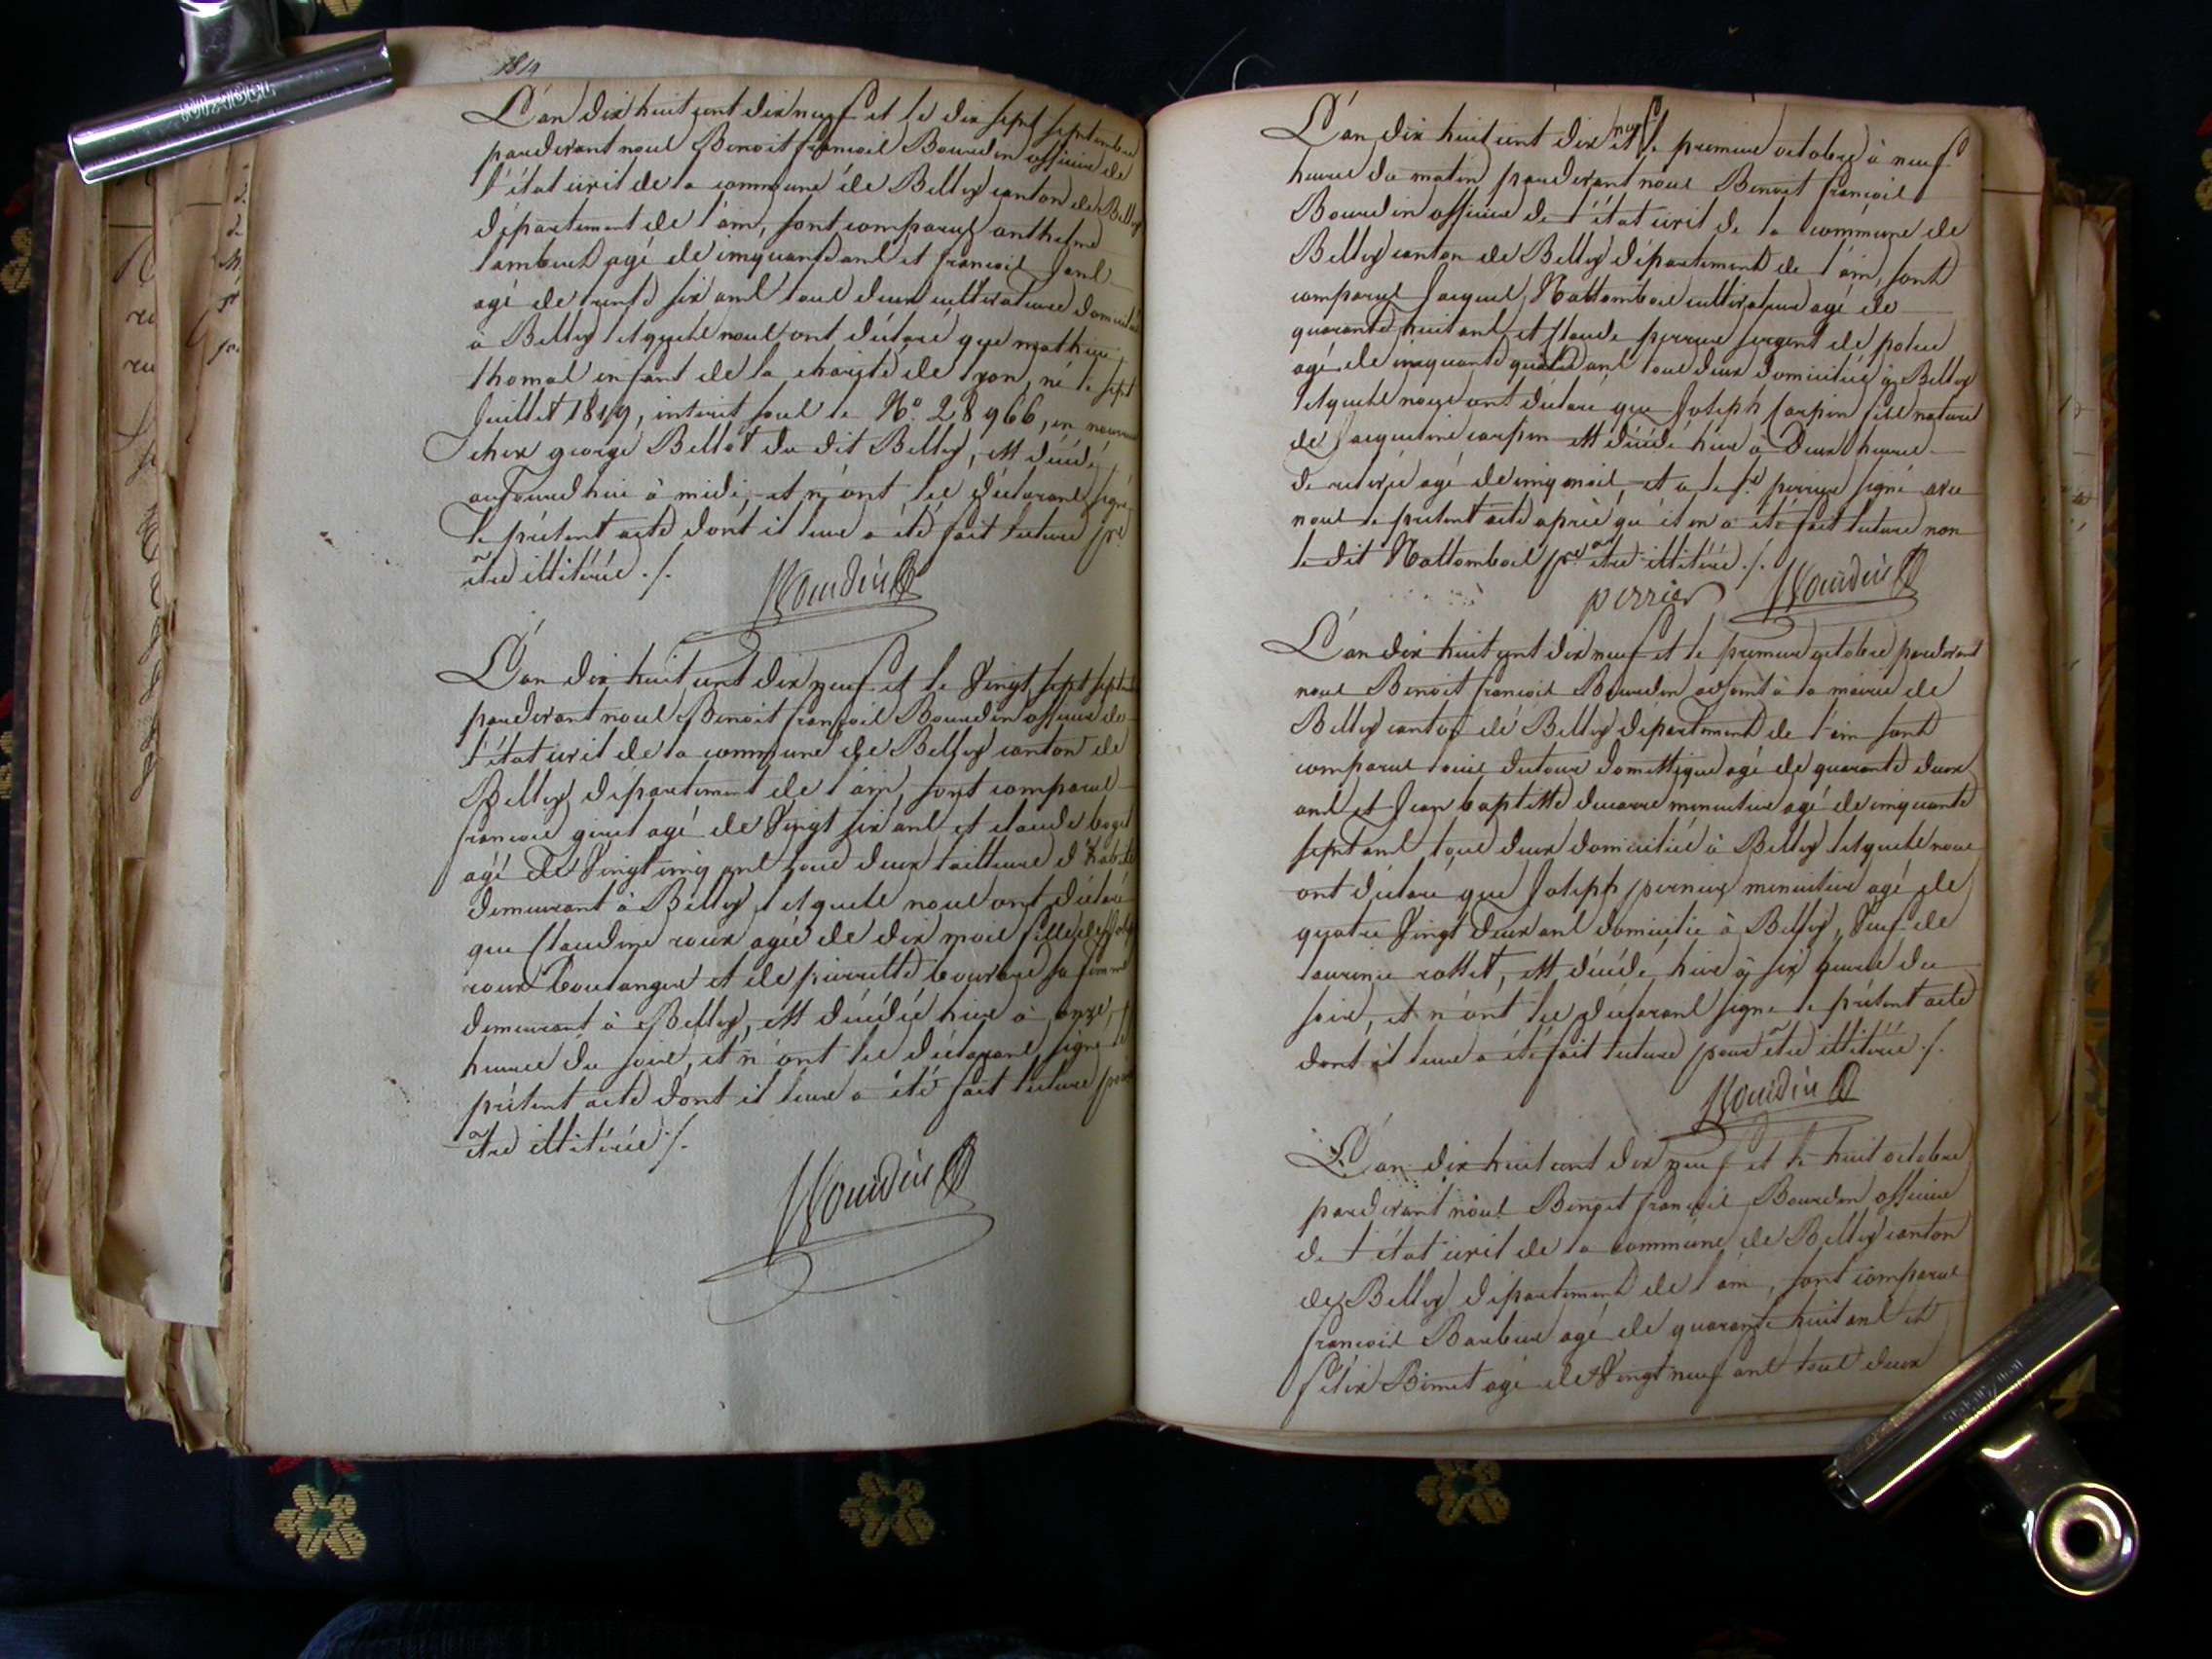 1819
L'an dix huit cent dix neuf et le dix sept septembre
pardevant nous Benoit françois Bourdin officier de
l'état civil de la commune de Belley canton de Belley
département de l'ain, sont comparus anthelme
Lambert agé de cinquante ans et françois
agé de trente six ans tous deux cultivateurs
à Belley lesquels nous ont déclaré que mathieu
thomas enfant de la charité de Lyon, né le sept
Juillet 1819, inscrit sous le N.o 28966, en
chez george Bellet du dit Belley, est décédé
aujourd'hui à midi, et n'ont les déclarans signé
le présent acte dont il leur a été fait lecture pr.
être illitérés ./.
Bourdin
L'an dix huit cent dix neuf et le Vingt sept
pardevant nous Benoit françois Bourdin officier de
l'état civil de la commune de Belley canton de
Belley département de l'ain, sont comparus
françois agé de Vingt six ans et claude
agé de Vingt cinq ans tous deux tailleurs d'habits
demeurant à Belley lesquels nous ont déclaré
que Claudine roux agée de dix mois fille de
roux Boulanger et de pierrette sa femme
demeurant à Belley, est décédée hier à onze
heures du soir, et n'ont les déclarans signé le
présent acte dont il leur a été fait lecture pour
être illitérés ./.
Bourdin
L'an dix huit cent dix neuf et le premier octobre à neuf
heures du matin pardevant nous Benoit françois
Bourdin officier de l'état civil de la commune de
Belley canton de Belley département de l'ain, sont
comparus Jacques Nattombois cultivateur agé de
quarante huit ans et Claude perrier sergent de police
agé de cinquante quatre ans tous deux domiciliés à Belley
lesquels nous ont déclaré que Joseph Carpin fils naturel
de Jacqueline carpin est décédé hier à Deux heures
de relevée agé de cinq mois, et a le s.r perrier signé avec
nous le présent acte après qu'il en a été fait lecture non
le dit Nattombois pr. être illitéré ./.
perrier Bourdin
L'an dix huit cent dix neuf et le premier octobre pardevant
nous Benoit françois Bourdin adjoint à la mairie de
Belley canton de Belley département de l'ain sont
comparus Louis dutour domestique agé de quarante deux
ans et Jean baptiste menuisier agé de cinquante
sept ans tous deux domiciliés à Belley lesquels nous
ont déclaré que Joseph menuisier agé de
quatre Vingt deux ans domicilié à Belley, Veuf de
laurence rottet, est décédé hier à six heures du
soir, et n'ont les déclarans signé le présent acte
dont il leur a été fait lecture pour être illitérés ./.
Bourdin
L'an dix huit cent dix neuf et le huit octobre
pardevant nous Benoit françois Bourdin officier
de l'état civil de la commune de Belley canton
de Belley département de l'ain, sont comparus
françois Barbier agé de quarante huit ans et
félix Bimet agé de Vingt neuf ans tous deux